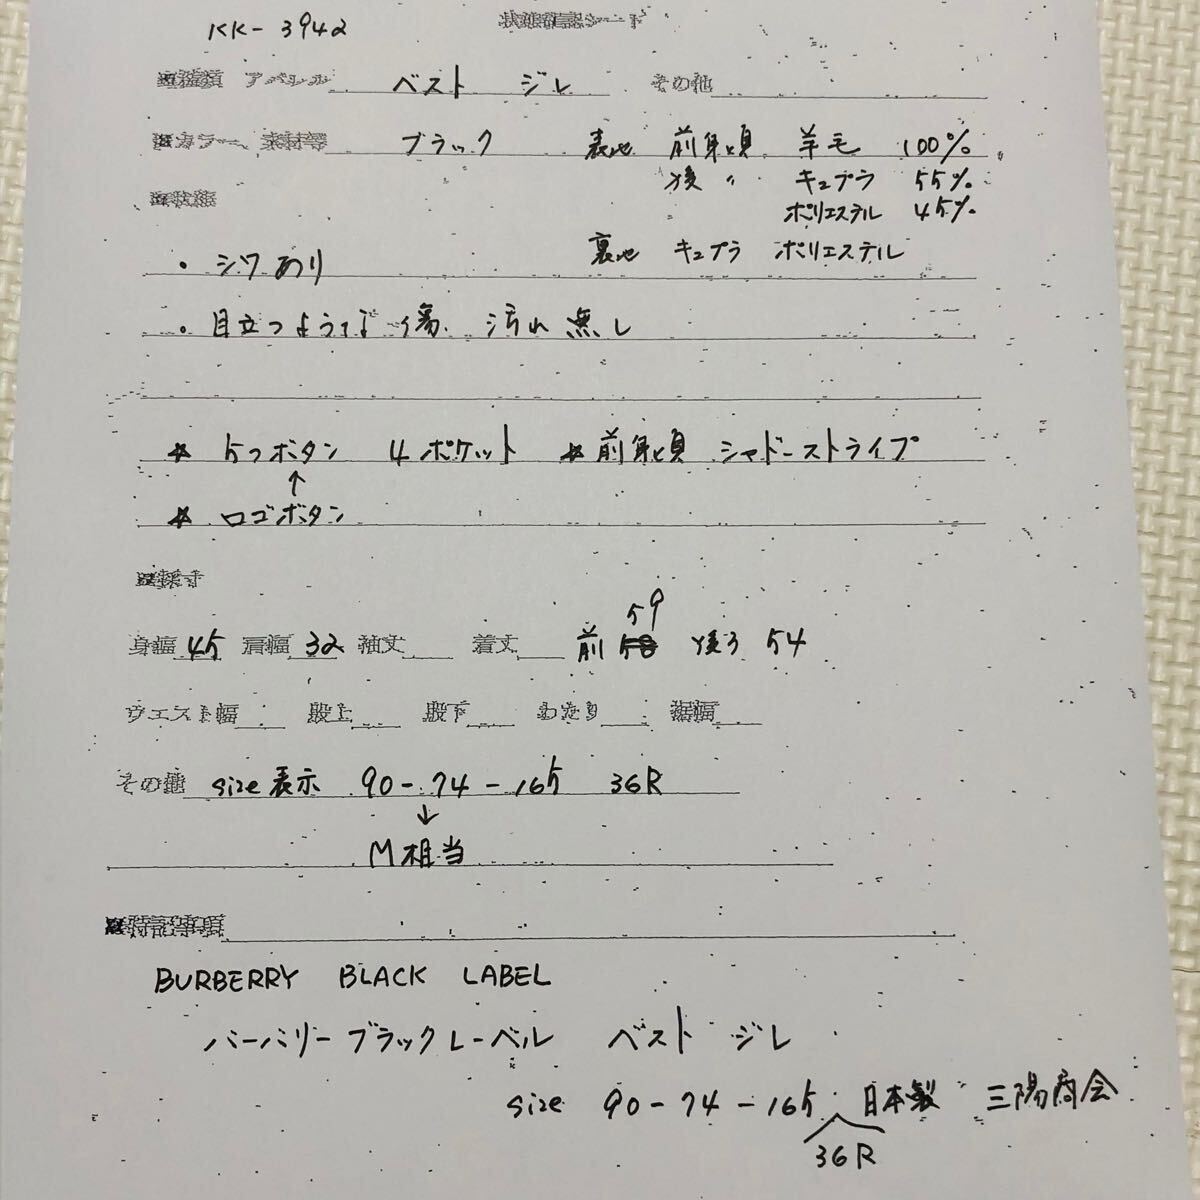 KK-3942
状態確認シート
■種類 アパレル ベスト ジレ その他
■カラー、素材等 ブラック 表地 前身頃 羊毛 100%
後 〃 キュプラ 55%
ポリエステル 45%
■状態
裏地 キュプラ ポリエステル
・シワあり
・目立つような傷 汚れ無し
☆ 5つボタン 4ポケット ☆前身頃 シャドーストライプ
↑
☆ ロゴボタン
■採寸
59
身幅 45 肩幅 32 袖丈 着丈 前 58 後ろ 54
ウエスト幅 股上 股下 わたり 裾幅
その他 size表示 90-74-165 36R
↓
M相当
■特記事項
BURBERRY BLACK LABEL
バーバリーブラックレーベル ベスト ジレ
size 90-74-165 日本製 三陽商会
36R